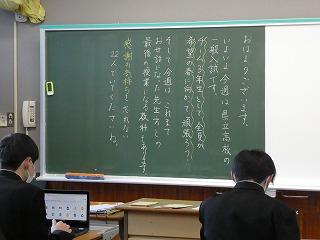 おはようございます。
いよいよ今週は県立高校の
一般入試です。
チーム3年生として、全員が
希望の春に向かって頑張ろう！
そして、今週は、これまで
お世話になった先生方との
最後の授業になる教科もあります。
感謝の気持ちを忘れない
22人でいてくださいね。